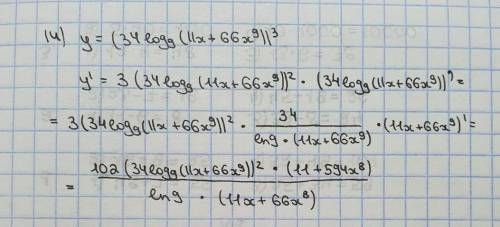 14) y = (34log₉(11x+66x⁹))³
y' = 3(34log₉(11x+66x⁹))² · (34log₉(11x+66x⁹))' =
= 3(34log₉(11x+66x⁹))² · 34/(ln9 · (11x+66x⁹)) · (11x+66x⁹)' =
= 102(34log₉(11x+66x⁹))² · (11+594x⁸)/(ln9 · (11x+66x⁹))